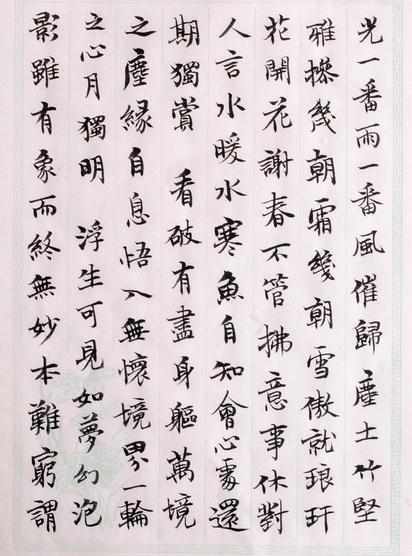 光一番雨一番風催歸塵土竹堅
雅操幾朝霜幾朝雪傲就琅玕
花開花謝春不管拂意事休對
人言水暖水寒魚自知會心處還
期獨賞 看破有盡身軀萬境
之塵緣自息悟入無懷境界一輪
之心月獨明 浮生可見如夢幻泡
影雖有象而終無妙本難窮謂